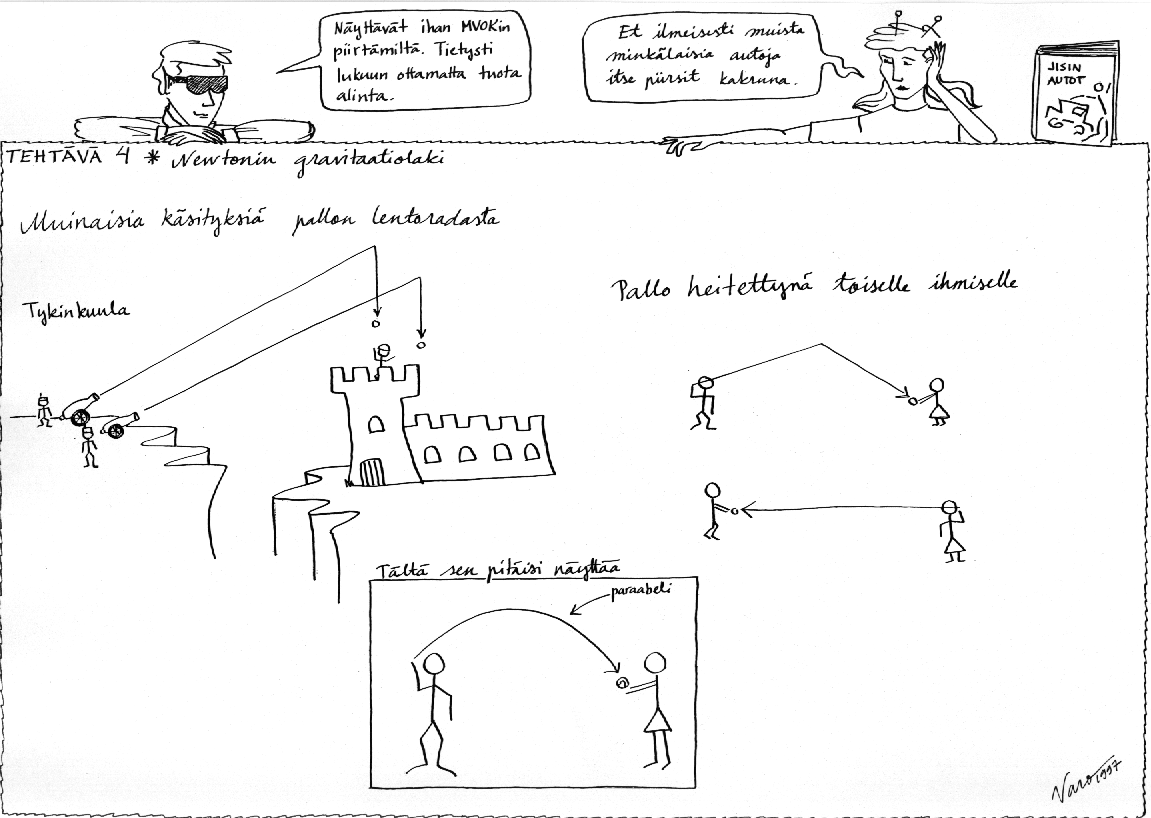 Näyttävät ihan MVOKin
piirtämiltä. Tietysti
lukuun ottamatta tuota
alinta.
Et ilmeisesti muista
minkälaisia autoja
itse piirsit kakruna.
JISIN
AUTOT
TEHTÄVÄ 4 * Newtonin gravitaatiolaki
Muinaisia käsityksiä pallon lentoradasta
Tykinkuula
Pallo heitettynä toiselle ihmiselle
Tältä sen pitäisi näyttää
paraabeli
Varo 1997